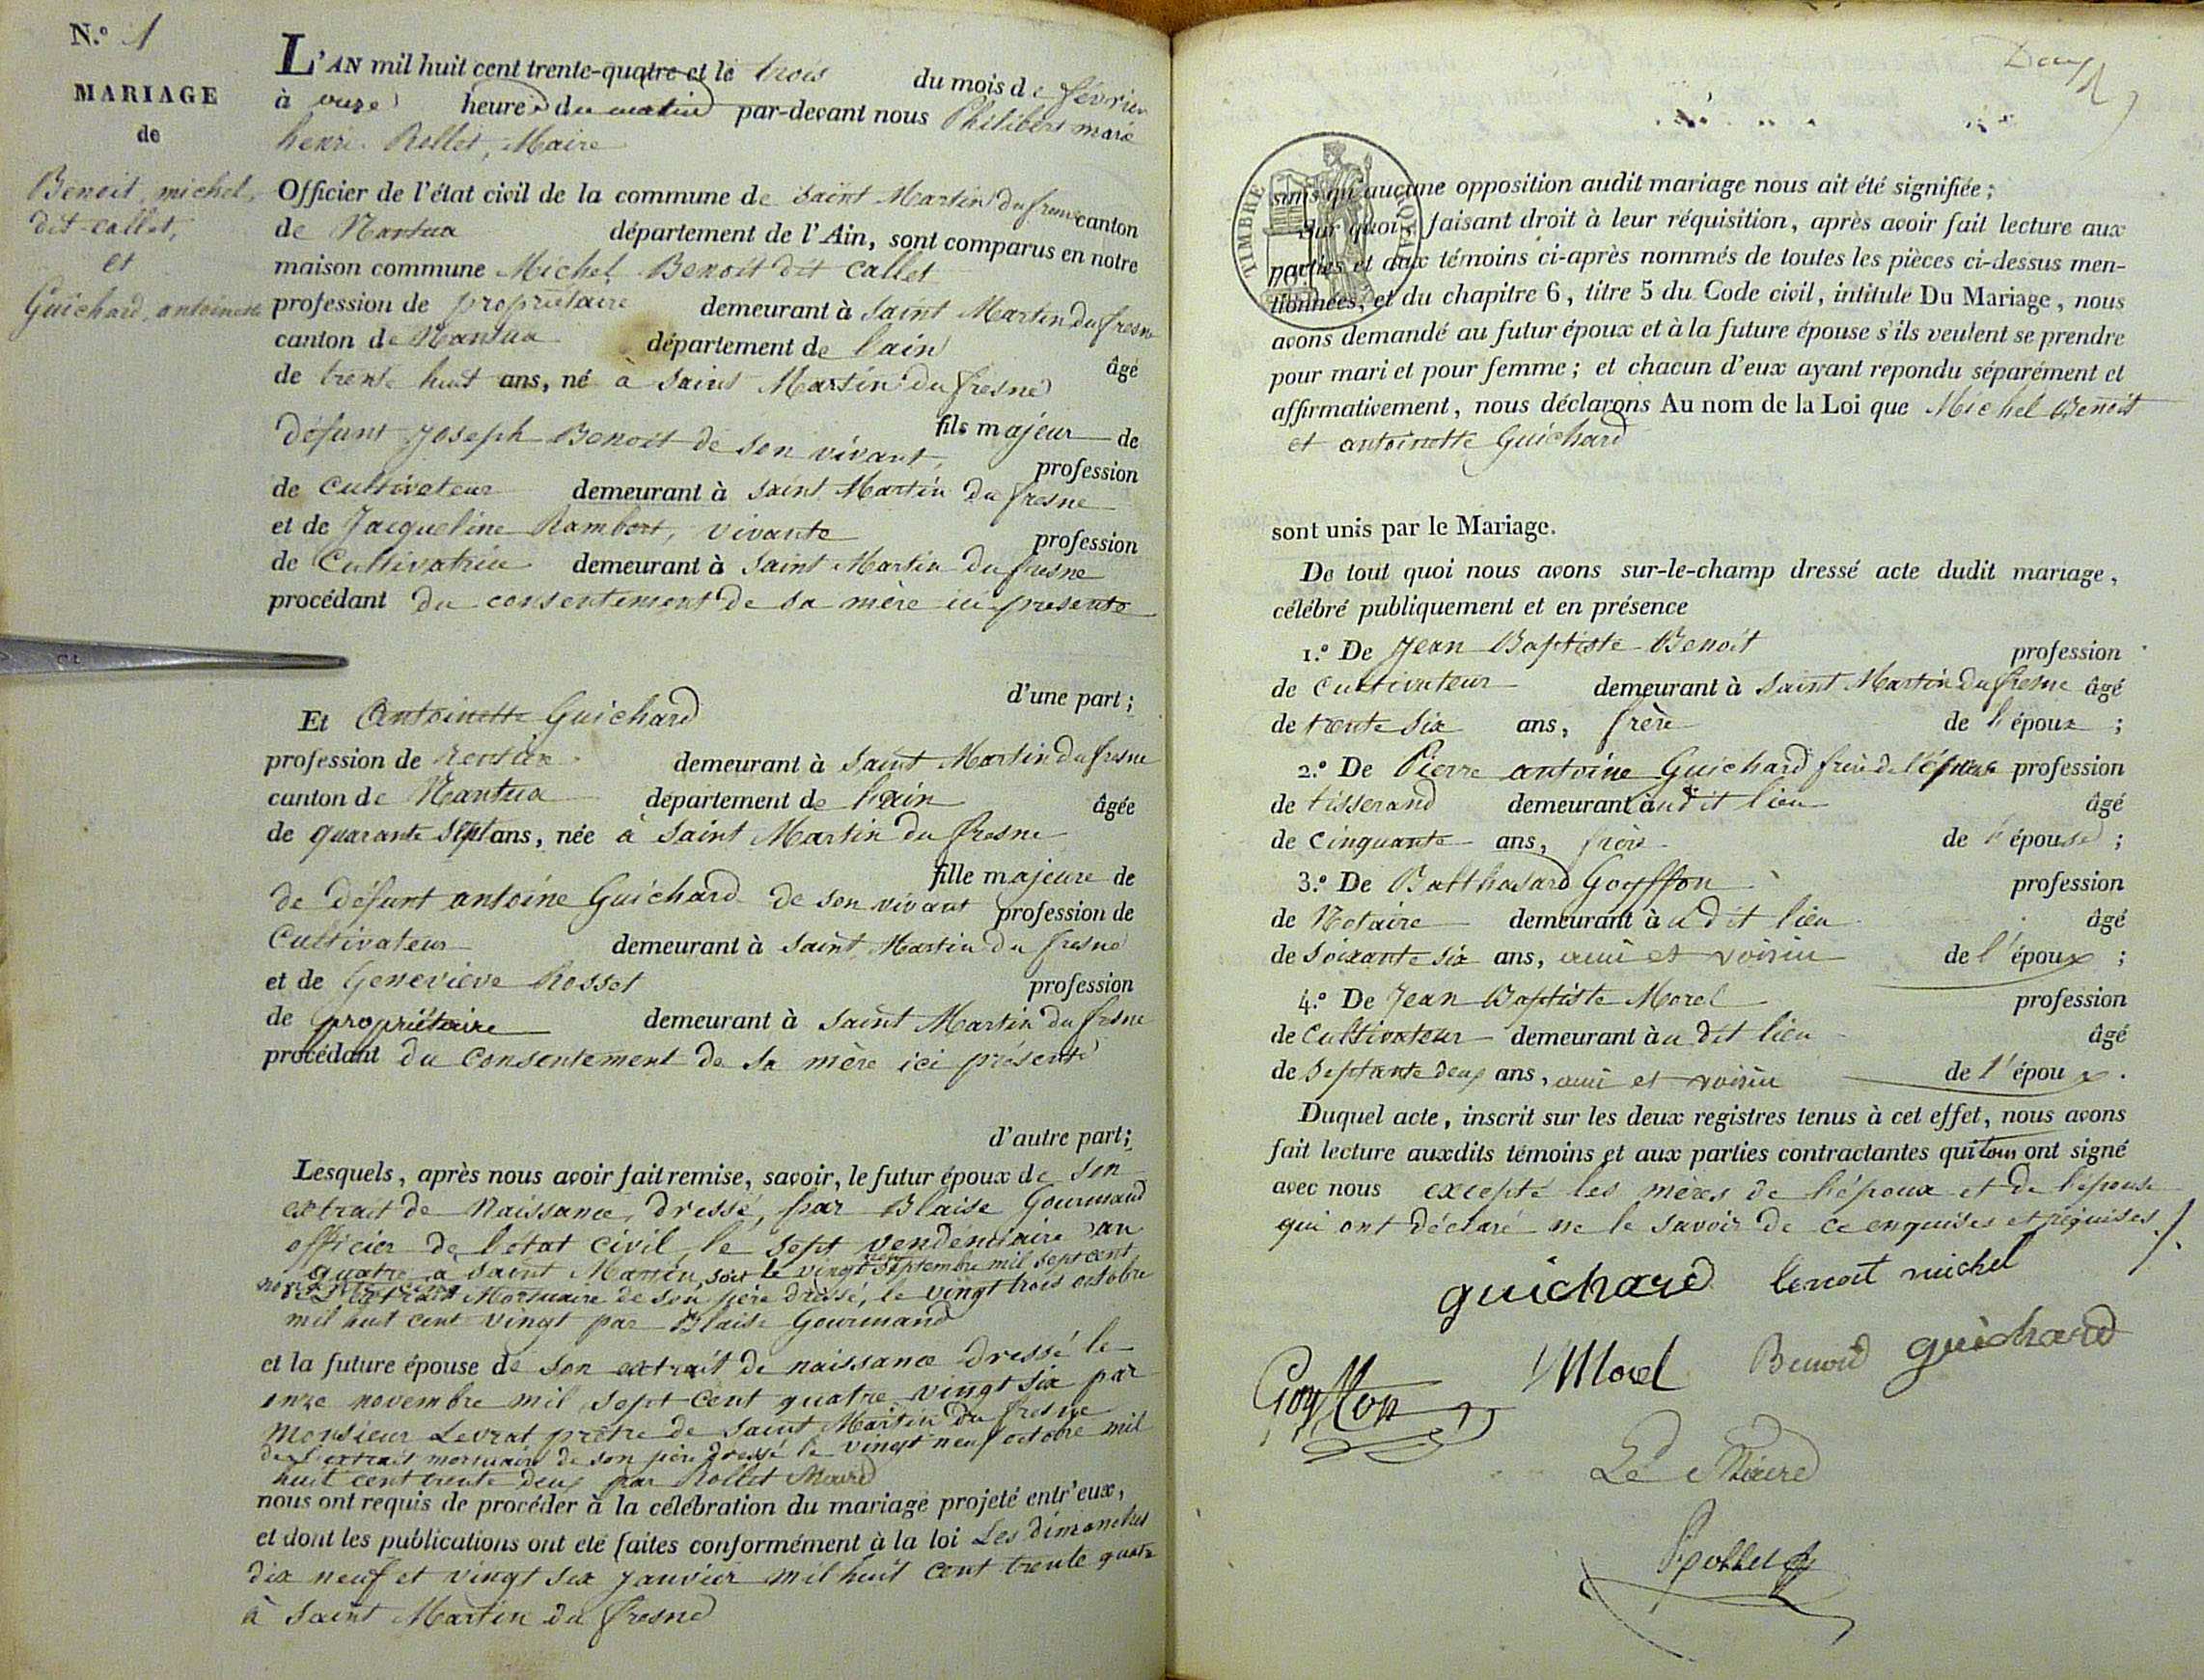 N.º 1
MARIAGE
de
Benoit, michel,
dit callet,
et
Guichard, antoinette
L'AN mil huit cent trente-quatre et le trois du mois de février
à onze heures du matin par-devant nous Philibert marie
henri Rollet, Maire
Officier de l'état civil de la commune de saint Martin du fresne canton
de Nantua département de l'Ain, sont comparus en notre
maison commune Michel Benoit dit callet
profession de propriétaire demeurant à saint Martin du fresne
canton de Nantua département de l'ain âgé
de trente huit ans, né à saint Martin du fresne
fils majeur de
défunt Joseph Benoit de son vivant, profession
de Cultivateur demeurant à saint Martin du fresne
et de Jacqueline Rambert, vivante profession
de Cultivatrice demeurant à saint Martin du fresne
procédant du consentement de sa mère ici présente
d'une part ;
Et Antoinette Guichard
profession de demeurant à saint Martin du fresne
canton de Nantua département de l'ain âgée
de quarante sept ans, née à saint Martin du fresne
fille majeure de
de défunt antoine Guichard de son vivant profession de
Cultivateur demeurant à saint Martin du fresne
et de Geneviève Rosset profession
de propriétaire demeurant à saint Martin du fresne
procédant du consentement de sa mère ici présente
d'autre part ;
Lesquels, après nous avoir fait remise, savoir, le futur époux de son
extrait de Naissance, dressé, par Blaise Gourmand
officier de l'état civil, le sept vendémiaire an
quatre à saint Martin, soit le vingt neuf septembre mil sept cent
extrait Mortuaire de son père dressé, le vingt trois octobre
mil huit cent vingt par Blaise Gourmand
et la future épouse de son extrait de naissance dressé le
onze novembre mil sept cent quatre vingt six par
Monsieur Levrat prêtre de saint Martin du fresne
de l'extrait mortuaire de son père dressé le vingt neuf octobre mil
huit cent trente deux par Rollet Maire
nous ont requis de procéder à la célébration du mariage projeté entr'eux,
et dont les publications ont été faites conformément à la loi Les dimanches
dix neuf et vingt six janvier mil huit cent trente quatre
à saint Martin du fresne
TIMBRE ROYAL
sans qu'aucune opposition audit mariage nous ait été signifiée ;
Sur quoi, faisant droit à leur réquisition, après avoir fait lecture aux
parties et aux témoins ci-après nommés de toutes les pièces ci-dessus men-
tionnées, et du chapitre 6, titre 5 du Code civil, intitulé Du Mariage, nous
avons demandé au futur époux et à la future épouse s'ils veulent se prendre
pour mari et pour femme ; et chacun d'eux ayant repondu séparément et
affirmativement, nous déclarons Au nom de la Loi que Michel Benoit
et antoinette Guichard
sont unis par le Mariage.
De tout quoi nous avons sur-le-champ dressé acte dudit mariage,
célébré publiquement et en présence
1.º De Jean Baptiste Benoit profession
de Cultivateur demeurant à saint Martin du fresne âgé
de trente six ans, frère de l'époux ;
2.º De Pierre antoine Guichard frère de l'épouse profession
de tisserand demeurant audit lieu âgé
de Cinquante ans, frère de l'épouse ;
3.º De Balthasard Goyffon profession
de Notaire demeurant à udit lieu âgé
de soixante six ans, ami et voisin de l'époux ;
4.º De Jean Baptiste Morel profession
de Cultivateur demeurant àu dit lieu âgé
de septante deux ans, ami et voisin de l'époux.
Duquel acte, inscrit sur les deux registres tenus à cet effet, nous avons
fait lecture auxdits témoins et aux parties contractantes qui tous ont signé
avec nous excepté les mères de l'époux et de l'épouse
qui ont déclaré ne le savoir de ce enquises et requises ./.
guichard benoit michel
Goyffon Morel Benoid guichard
Le Maire
Rollet